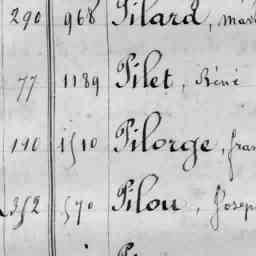 290 968 Pilard, Mar
77 1189 Pilet, Réné
140 1510 Pilorge, fran
352 570 Pilou, Josep